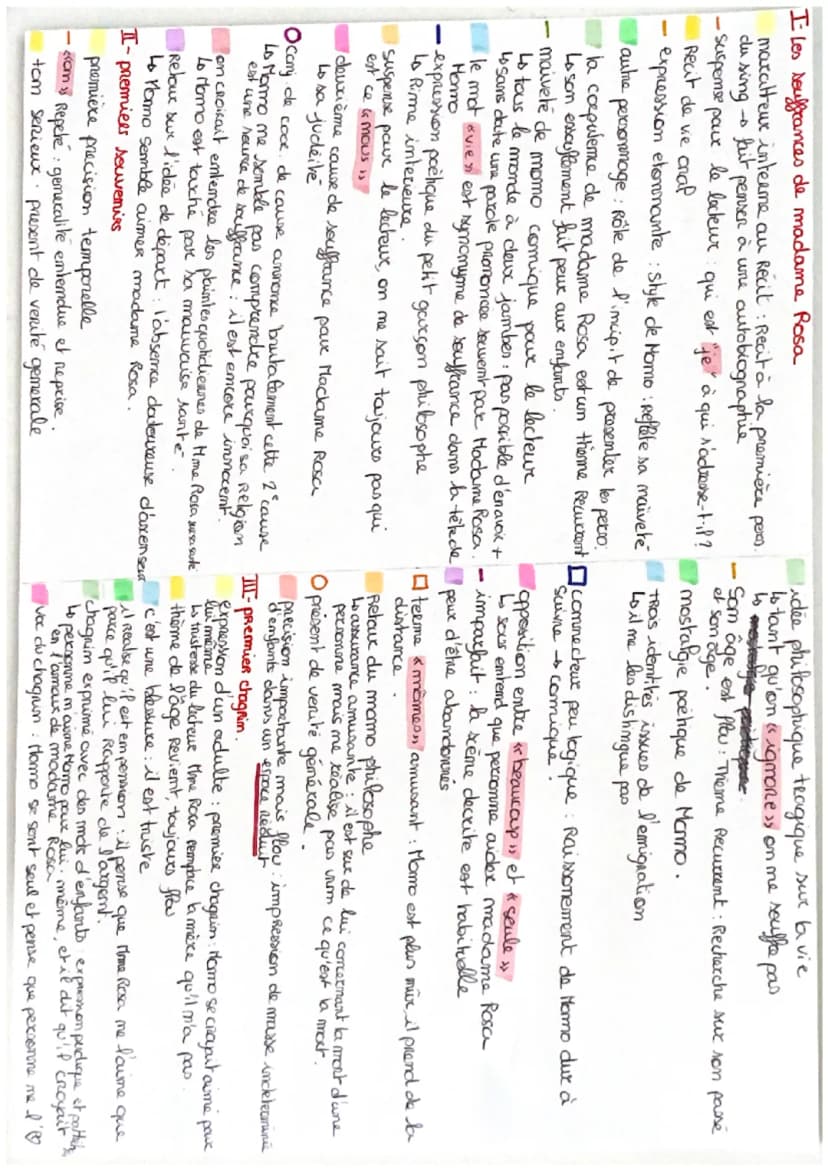 I- Les souffrances de madame Rosa
narrateur interne au récit : Récit à la première pers.
du sing → fait penser à une autobiographie
- suspense pour le lecteur : qui est "je" à qui s'adresse-t-il ?
Récit de vie oral
- expression étonnante : style de Momo : reflète sa naïveté
autre personnage : Rôle de l'incipit de présenter les perso.
la coquienne de madame Rosa est un thème récurrent
↳ son essouflement fait peur aux enfants.
- naïveté de momo comique pour le lecteur
↳ tous le monde à deux jambes : pas possible d'en avoir +
↳ sans doute une parole prononcée souvent par Madame Rosa.
le mot « vie » est synonyme de souffrance dans la tête de
Momo
- expression poétique du petit garçon philosophe
↳ Rime interieure.
suspense pour le lecteur, on ne sait toujours pas qui
est ce « nous »
deuxième cause de souffrance pour Madame Rosa
↳ sa judéité
Conj de coor. de cause annonce brutalement cette 2e cause
↳ Momo ne semble pas comprendre pourquoi sa religion
est une source de souffrance : il est encore innocent.
on croirait entendre les plaintes quotidiennes de Mme Rosa
↳ Momo est touché par sa mauvaise santé.
Retour sur l'idée de départ : l'absence douloureuse d'ascenseur
↳ Momo semble aimer madame Rosa.
II- premiers souvenirs
première précision temporelle
- Répété : généralité entendue et reprise.
ton sérieux. présent de vérité générale
idée philosophique tragique sur la vie
↳ tant qu'on « ignore » on ne souffre pas
↳
- son âge est flou : Thème récurrent : Recherche sur son passé
et son âge.
nostalgie poétique de Momo.
Trois identités issues de l'émigration
↳ il ne les distingue pas
connecteur peu logique : Raisonnement de Momo dur à
suivre → comique
opposition entre « beaucoup » et « seule »
↳ sous entend que personne aide madame Rosa
- imparfait : la scène décrite est habituelle
peur d'être abandonnés
terme « mômes » amusant : Momo est plus mûr, il prend de la
distance.
Retour du momo philosophe
↳ assurance amusante : il est sur de lui concernant la mort d'une
personne mais ne réalise pas vrm ce qu'est la mort.
présent de vérité générale.
précision importante mais flou : impression de masse indéterminée
d'enfants dans un espace réduit
III- premier chagrin.
expression d'un adulte : premier chagrin : Momo se croyait aimé pour
lui même
↳ tristesse du lecteur Mme Rosa remplace la mère qu'il n'a pas
thème de l'âge revient, toujours flou
c'est une blessure : il est triste
il réalise qu'il est en pension : il pense que Mme Rosa ne l'aime que
parce qu'il lui rapporte de l'argent.
chagrin exprimé avec des mots d'enfants expression poétique et
↳ personne n'avaime Momo pour lui-même, et il dit qu'il croyait
en l'amour de madame Rosa
voc du chagrin : Momo se sent seul et pense que personne ne l'♡